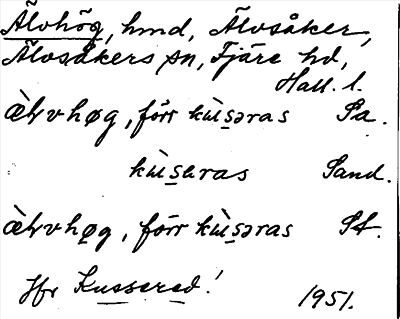 Älvhög, hmd, Älvsåker,
Älvsåkers sn, Fjäre hd,
Hall. l.
ὲɫvhøg, förr kùsəras Sa.
kùsəras Sand.
ὲɫvhøg, förr kùsəras St.
Jfr Kussered!
1951.